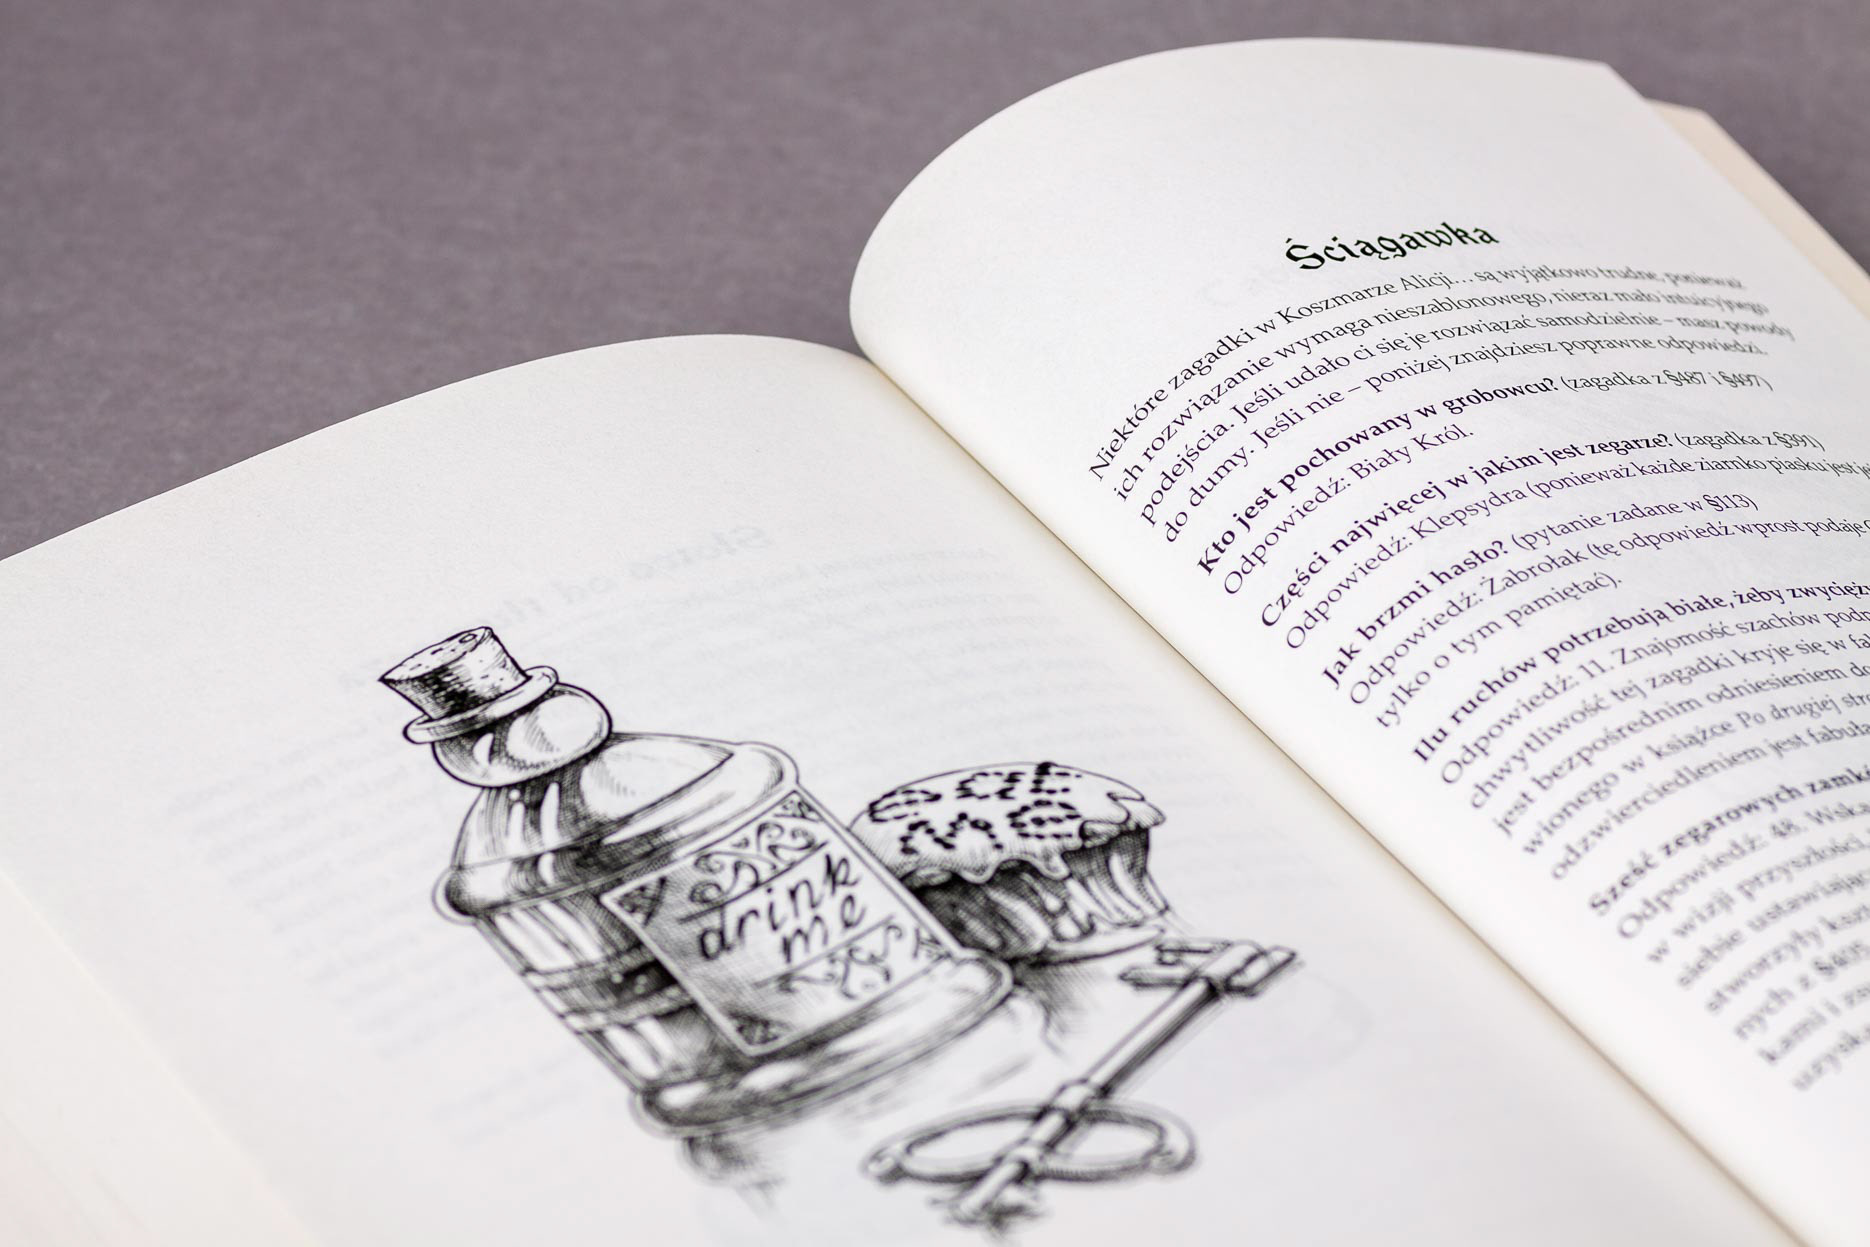 drink
me
Ściągawka
Niektóre zagadki w Koszmarze Alicji… są wyjątkowo trudne, ponieważ
ich rozwiązanie wymaga nieszablonowego, nieraz mało intuicyjnego
podejścia. Jeśli udało ci się je rozwiązać samodzielnie – masz powody
do dumy. Jeśli nie – poniżej znajdziesz poprawne odpowiedzi.
Kto jest pochowany w grobowcu? (zagadka z §487 i §497)
Odpowiedź: Biały Król.
Części najwięcej w jakim jest zegarze? (zagadka z §391)
Odpowiedź: Klepsydra (ponieważ każde ziarnko piasku jest
Jak brzmi hasło? (pytanie zadane w §113)
Odpowiedź: Żabrołak (tę odpowiedź wprost podaje
tylko o tym pamiętać).
Ilu ruchów potrzebują białe, żeby zwycięż
Odpowiedź: 11. Znajomość szachów
chwytliwość tej zagadki kryje się w
jest bezpośrednim odniesieniem do
wionego w książce Po drugiej
odzwierciedleniem jest fabuła
Sześć zegarowych
Odpowiedź: 48.
w wizji przyszłości
siebie ustawiając
stworzyły
nych z
kami i